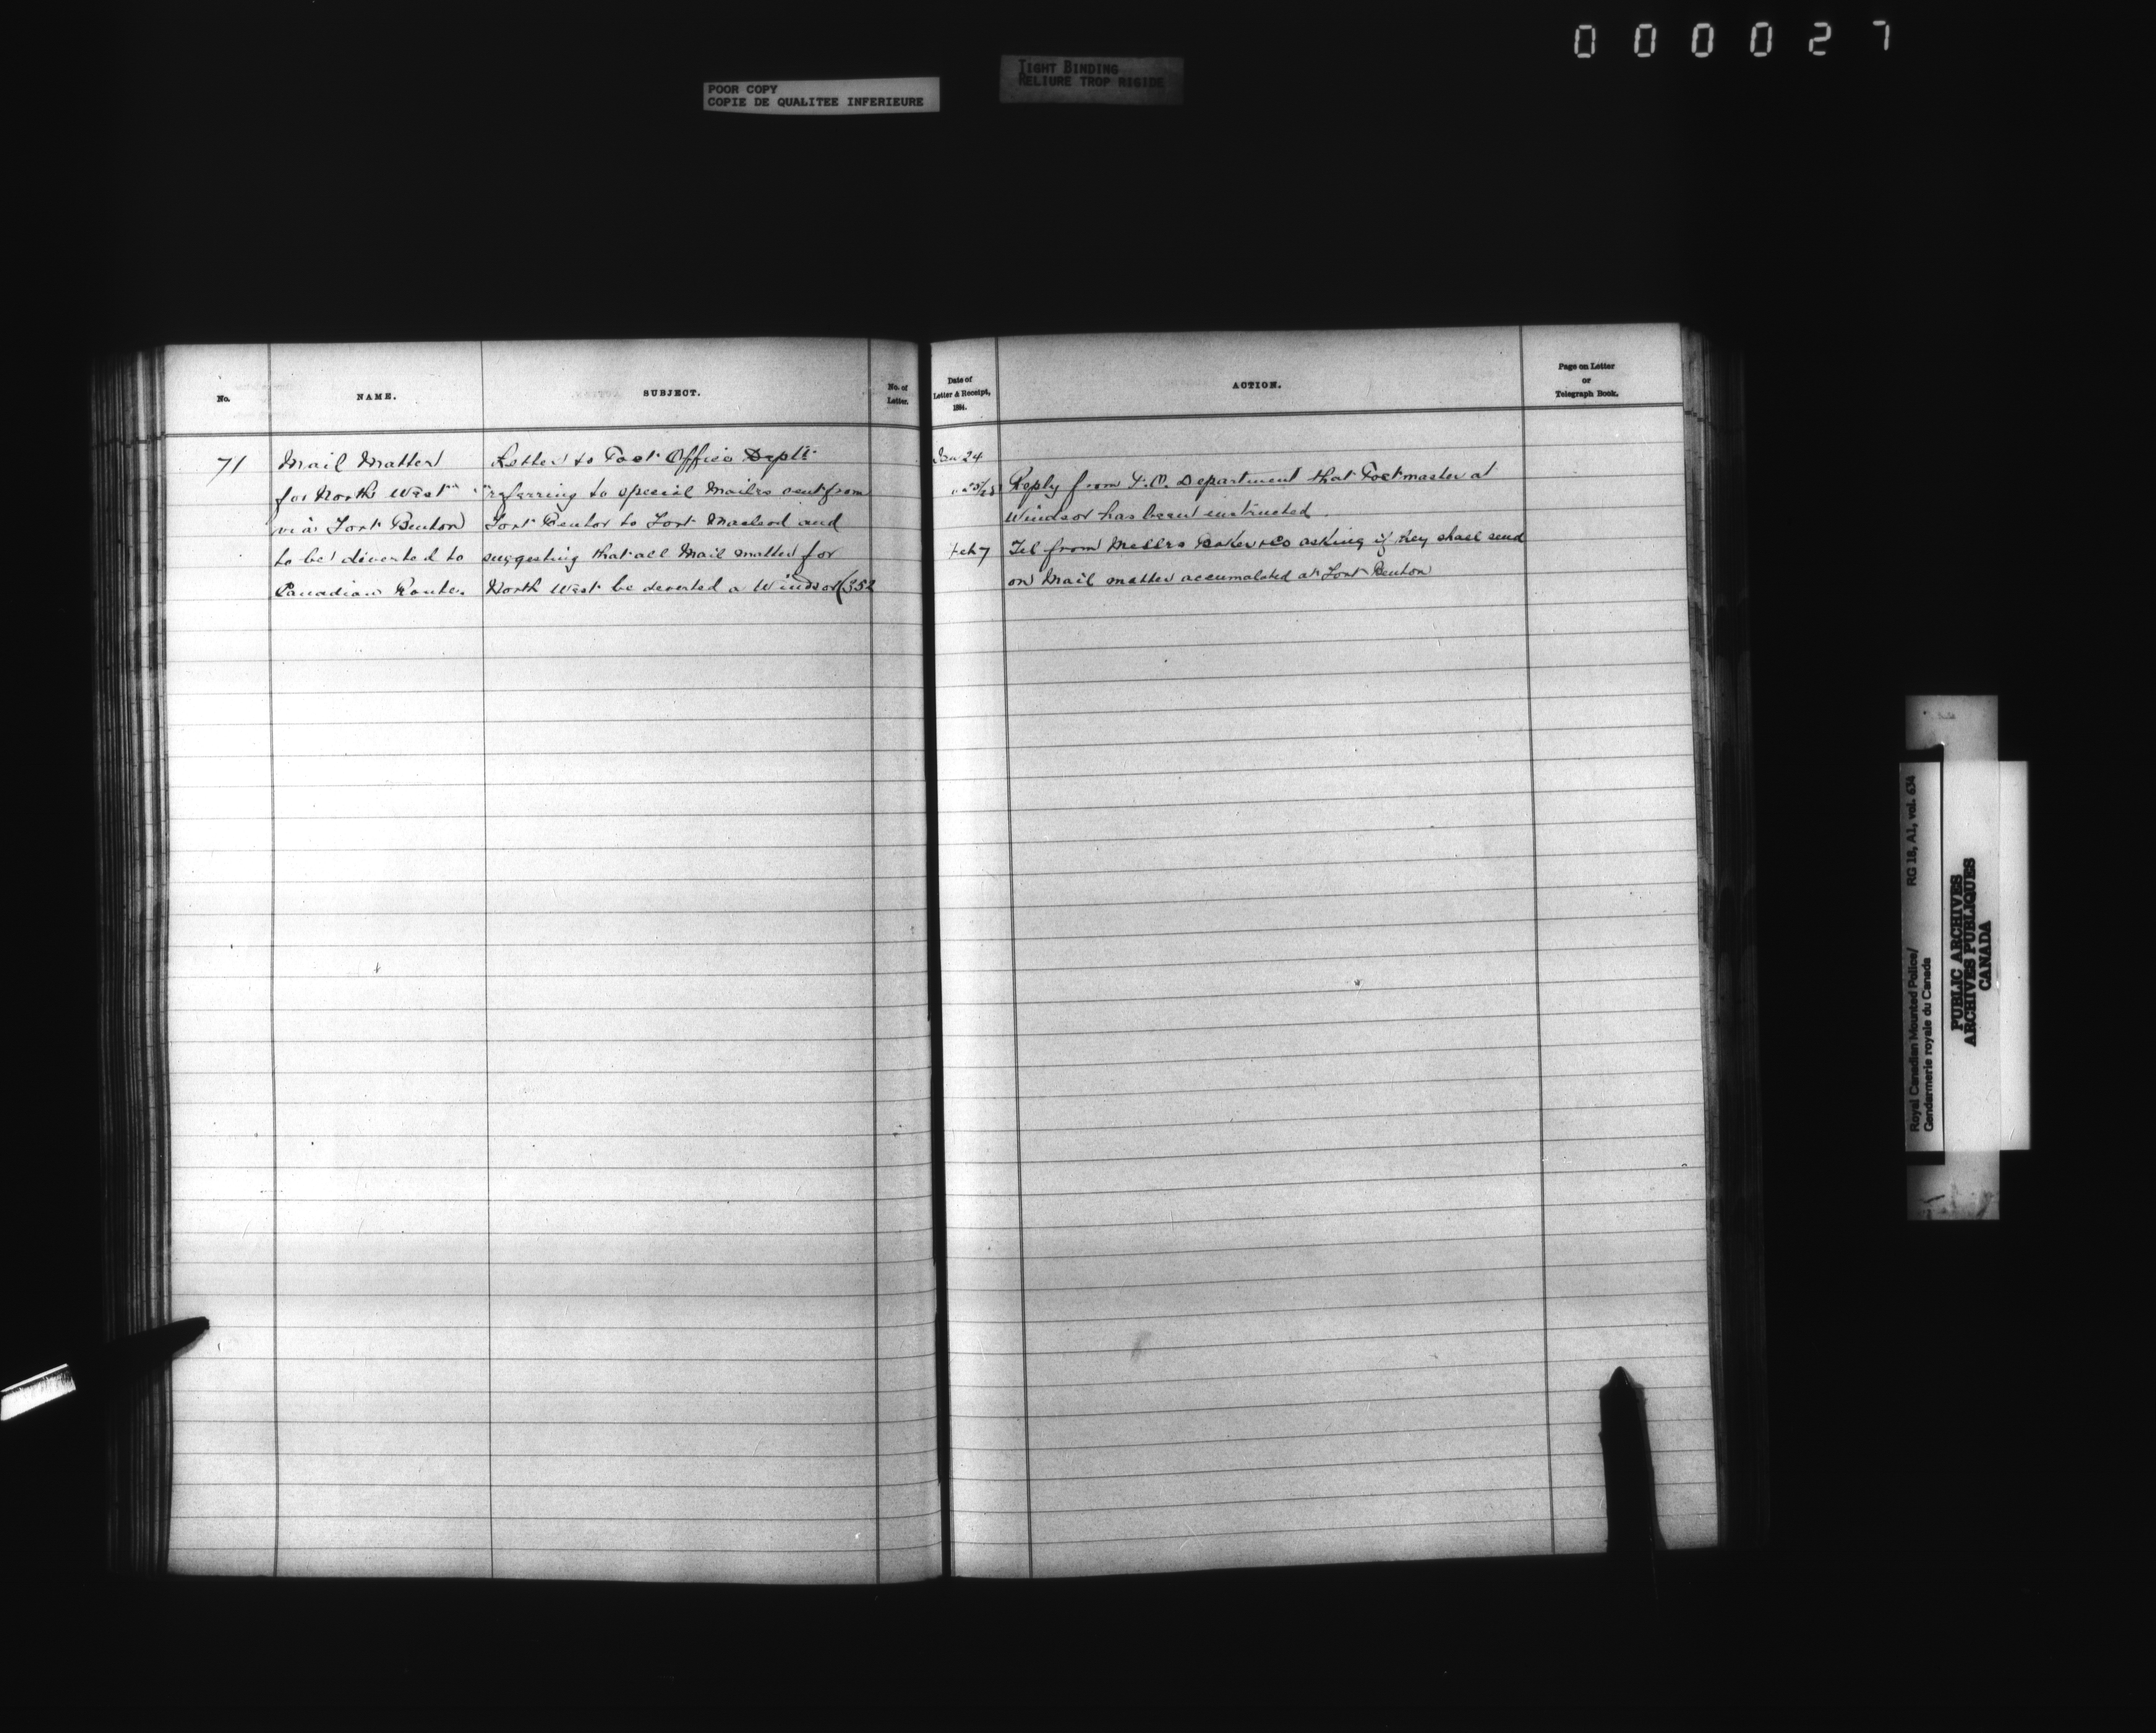 000027
POOR COPY
COPIE DE QUALITEE INFERIEURE
TIGHT BINDING
RELIURE TROP RIGIDE
No.
NAME.
SUBJECT.
No. of
Letter.
Date of
Letter & Receipt,
1884.
ACTION.
Page on Letter
or
Telegraph Book.
71
Mail Matter
for North West
via Fort Benton
to be diverted to
Canadian Route.
Letter to Post Office Deptt
referring to special Mails sent from
Fort Benton to Fort Macleod and
suggesting that all Mail matter for
North West be deverted a Windsor (352
Jan 24
" 25/28
Reply from P.O. Department that Postmaster at
Windsor has been instructed.
Feb 7
Tel from Messrs Baker & Co asking if they shall send
on Mail matter accumalated at Fort Benton
Royal Canadian Mounted Police/
Gendarmerie royale du Canada
RG 18, A1, vol. 634
PUBLIC ARCHIVES
ARCHIVES PUBLIQUES
CANADA